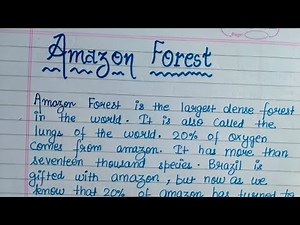 Amazon Forest
Amazon Forest is the largest dense forest
in the world. It is also called the
lungs of the world. 20% of oxygen
comes from amazon. It has more than
seventeen thousand species. Brazil is
gifted with amazon, but now as we
know that 20% of amazon has turned to